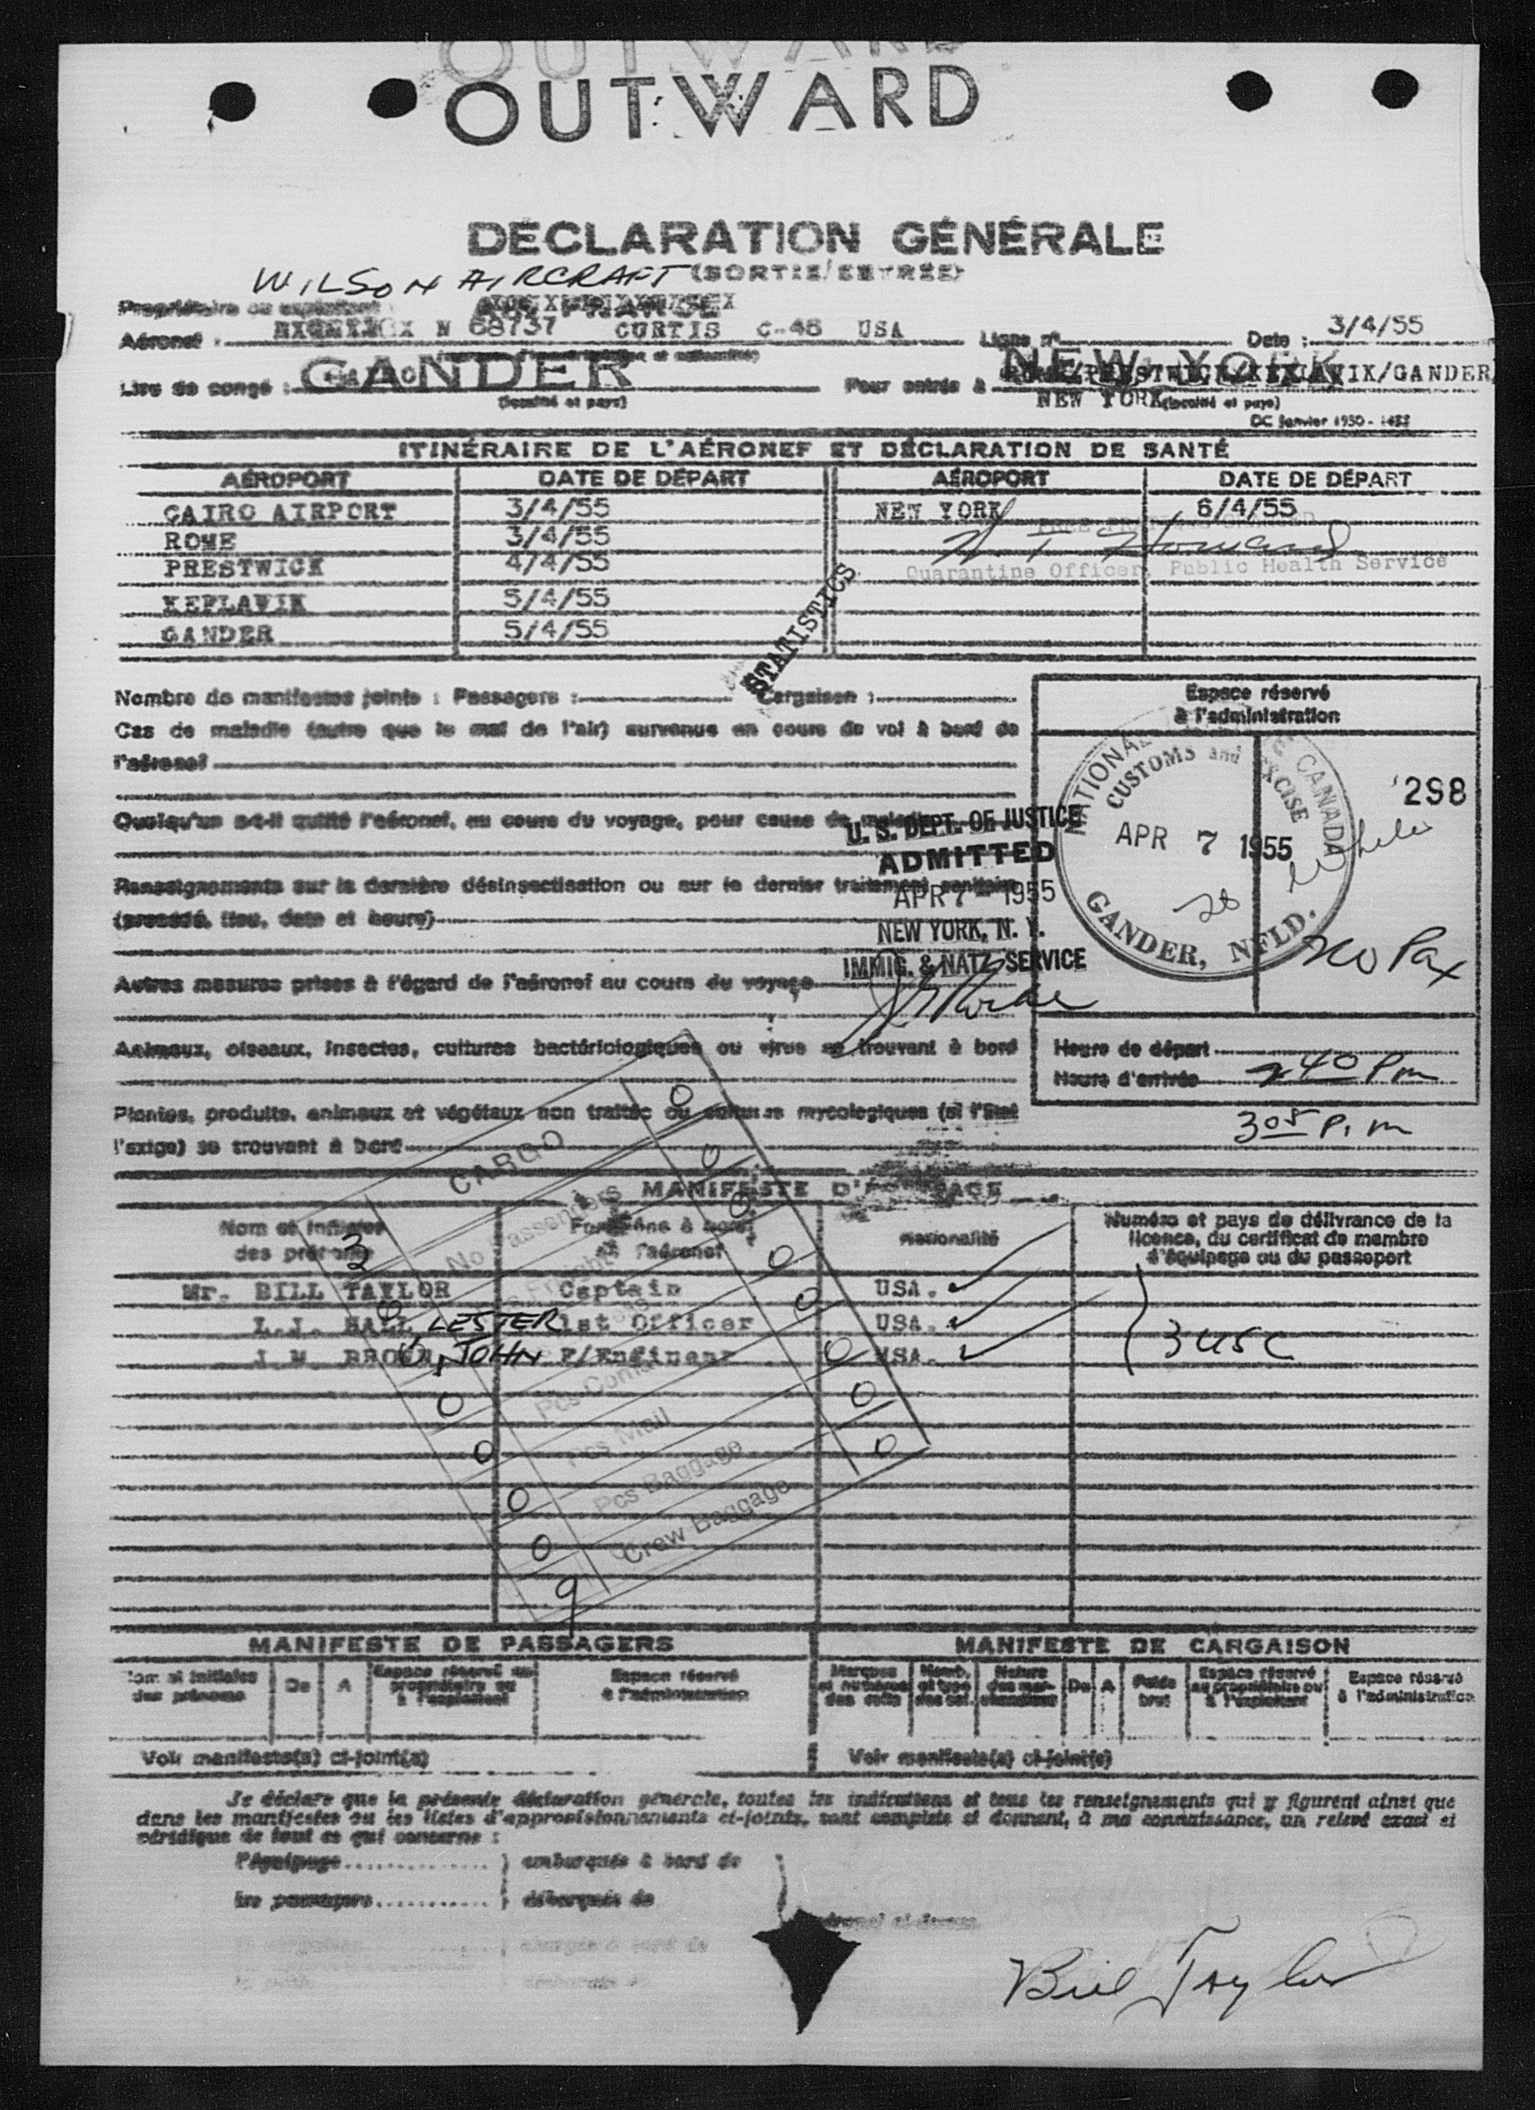 OUTWARD
DÉCLARATION GÉNÉRALE
(SORTIE/ENTRÉE)
WILSON AIRCRAFT
Propriétaire ou exploitant :
Aéronef : N 68737 CURTIS C-46 USA Ligne nº Date : 3/4/55
Lieu de congé : GANDER Pour entrée à NEW YORK
/PRESTWICK/KEFLAVIK/GANDER/
NEW YORK
(localité et pays) (localité et pays)
DC Janvier 1950 -
ITINÉRAIRE DE L'AÉRONEF ET DÉCLARATION DE SANTÉ
AÉROPORT DATE DE DÉPART AÉROPORT DATE DE DÉPART
CAIRO AIRPORT 3/4/55 NEW YORK 6/4/55
ROME 3/4/55
PRESTWICK 4/4/55
Quarantine Officer, Public Health Service
KEFLAVIK 5/4/55
GANDER 5/4/55
STATISTICS
Nombre de manifestes joints : Passagers : Cargaison :
Cas de maladie (autre que le mal de l'air) survenus en cours de vol à bord de
l'aéronef
Quelqu'un a-t-il quitté l'aéronef, au cours du voyage, pour cause de maladie
Renseignements sur la dernière désinsectisation ou sur le dernier traitement sanitaire
(procédé, lieu, date et heure)
Autres mesures prises à l'égard de l'aéronef au cours du voyage
Animaux, oiseaux, insectes, cultures bactériologiques ou virus se trouvant à bord
Plantes, produits, animaux et végétaux non traités ou cultures mycologiques (si l'État
l'exige) se trouvant à bord
U. S. DEPT. OF JUSTICE
ADMITTED
APR 7 - 1955
NEW YORK, N. Y.
IMMIG. & NATZ. SERVICE
Espace réservé
à l'administration
NATIONAL CANADA
CUSTOMS and EXCISE
APR 7 1955
GANDER, NFLD.
298
No Pax
Heure de départ
Heure d'arrivée 240 Pm
305 P.m
MANIFESTE D'ÉQUIPAGE
Nom et initiales
des prénoms
Fonctions à bord
de l'aéronef
Nationalité
Numéro et pays de délivrance de la
licence, du certificat de membre
d'équipage ou du passeport
Mr. BILL TAYLOR Captain USA.
L.J. HALL, LESTER 1st Officer USA.
J.W. BROWN, JOHN F/Engineer USA.
3 USC
CARGO
0
3 No Passengers 0
0 Freight 0
0
0 Pcs 0
0 Pcs Mail 0
0 Pcs Baggage 0
9 Crew Baggage 0
MANIFESTE DE PASSAGERS MANIFESTE DE CARGAISON
Nom et initiales
des prénoms
De A
Espace réservé au
propriétaire ou
à l'exploitant
Espace réservé
à l'administration
Marques
et numéros
des colis
Nomb.
et type
des col.
Nature
des mar-
chandises
De A
Poids
brut
Espace réservé
au propriétaire ou
à l'exploitant
Espace réservé
à l'administration
Voir manifeste(s) ci-joint(s) Voir manifeste(s) ci-joint(s)
Je déclare que la présente déclaration générale, toutes les indications et tous les renseignements qui y figurent ainsi que
dans les manifestes ou les listes d'approvisionnements ci-joints, sont complets et donnent, à ma connaissance, un relevé exact et
véridique de tout ce qui concerne :
l'équipage embarqués à bord de
les passagers débarqués de
Bill Taylor